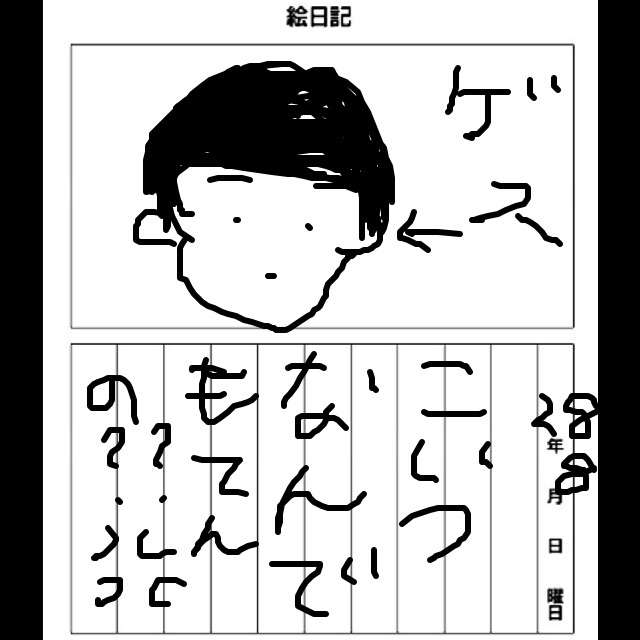 絵日記
ゲス
年月日曜日
こいつ
なんで
もてん
の??